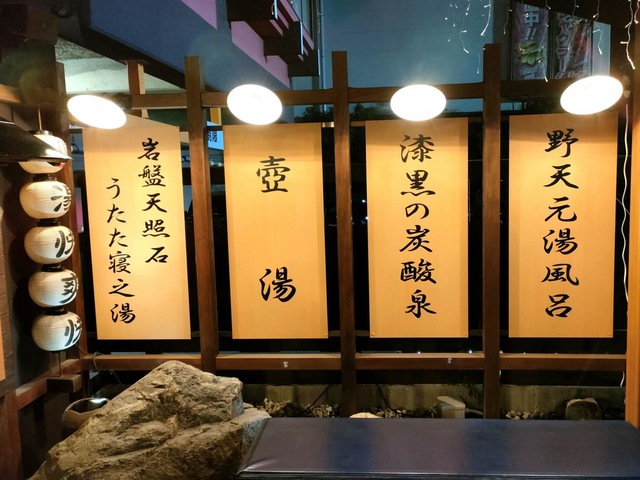 野天元湯風呂
漆黒の炭酸泉
壺湯
岩盤天照石
うたた寝之湯